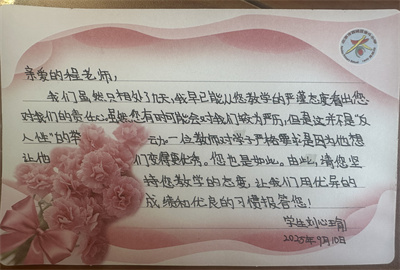 亲爱的程老师，
我们虽然只相处了几天，我早已能从您教学的严谨态度看出您
对我们的责任心。虽然您有时可能会对我们较为严厉，但是这并不是“反
人性”的举动。一位教师对学子严格要求是因为他想
让他们变得更优秀。您也是如此。由此，请您坚
持您教学的态度，让我们用优异的
成绩和优良的习惯报答您！
学生刘心玥
2025年9月10日